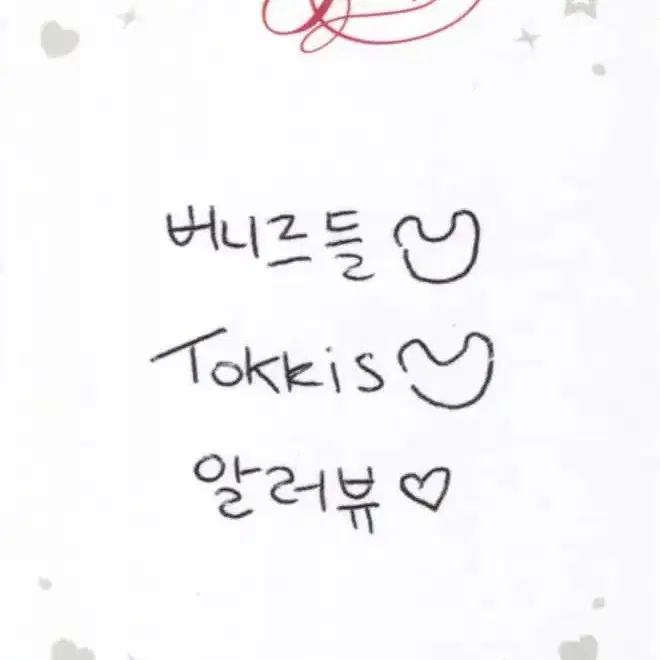 버니르들
Tokkis
알러뷰♡